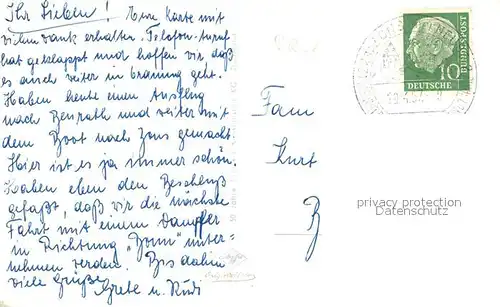 Ihr Lieben! Eure Karte mit
vielem Dank erhalten. Telefon-Anruf
hat geklappt und hoffen wir, daß
es auch weiter in Ordnung geht.
Haben heute einen Ausflug
nach Benrath und weiter mit
dem Boot nach Zons gemacht.
Hier ist es ja immer schön.
Haben eben den Beschluß
gefaßt, daß wir die nächste
Fahrt mit einem Dampfer
in Richtung "Bonn" unter-
nehmen werden. Bis dahin
viele Grüße
Grete u. Rudi
Fam
Kurt
DEUTSCHE
BUNDESPOST
10
privacy protection
Datenschutz